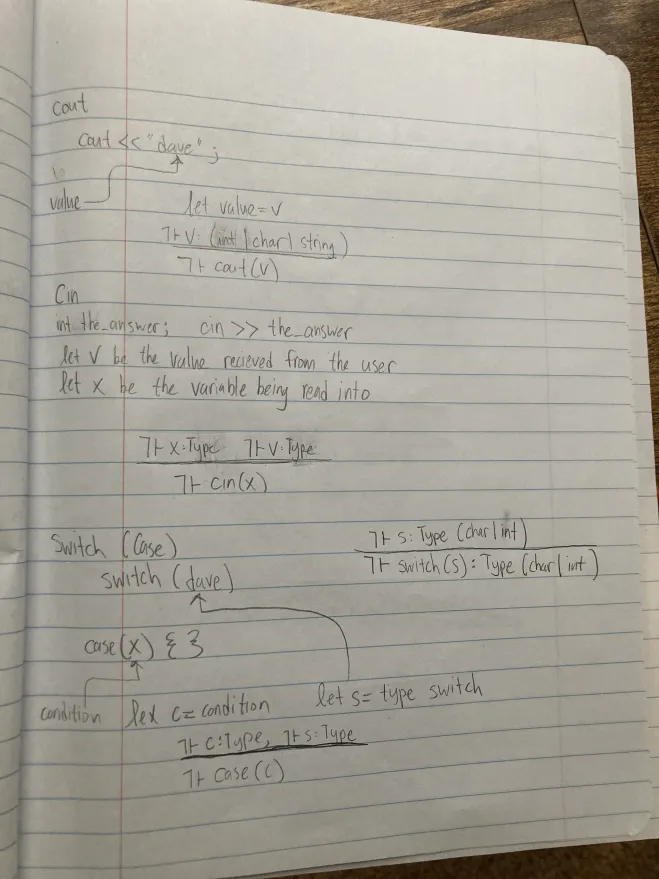 cout
cout << "dave" ;
value
let value = v
⅂⊢ v: (int | char | string)
⅂⊢ cout(v)
Cin
int the_answer; cin >> the_answer
let v be the value recieved from the user
let x be the variable being read into
⅂⊢ x:Type ⅂⊢ v:Type
⅂⊢ cin(x)
Switch (Case)
switch (dave)
⅂⊢ s: Type (char | int)
⅂⊢ switch(s): Type (char | int)
case(x) { }
let s = type switch
condition let c = condition
⅂⊢ c:Type, ⅂⊢ s:Type
⅂⊢ case(c)